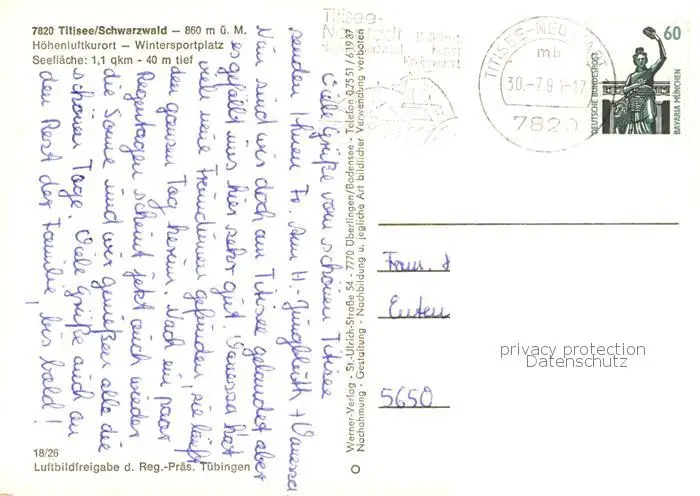 7820 Titisee/Schwarzwald — 860 m ü. M.
Höhenluftkurort — Wintersportplatz
Seefläche: 1,1 qkm - 40 m tief
Viele Grüße vom schönen Titisee
senden Ihnen Fr. H. Jungbluth + Vanessa
Nun sind wir doch am Titisee gelandet aber
es gefällt uns hier sehr gut. Vanessa hat
viele neue Freundinnen gefunden, sie läuft
den ganzen Tag herum. Nach ein paar
Regentagen scheint jetzt auch wieder
die Sonne und wir genießen alle die
schönen Tage. Viele Grüße auch an
den Rest der Familie, bis bald!
18/26
Luftbildfreigabe d. Reg.-Präs. Tübingen
Werner-Verlag - St.-Ulrich-Straße 54 - 7770 Überlingen/Bodensee - Telefon 07551/61987
Nachahmung - Gestaltung - Nachbildung u. jegliche Art bildlicher Verwendung verboten
Titisee-
Neustadt
TITISEE-NEUSTADT
mb
30.-7.91-17
7820
60
DEUTSCHE BUNDESPOST
BAVARIA MÜNCHEN
Fam.
Enten
5650
privacy protection
Datenschutz